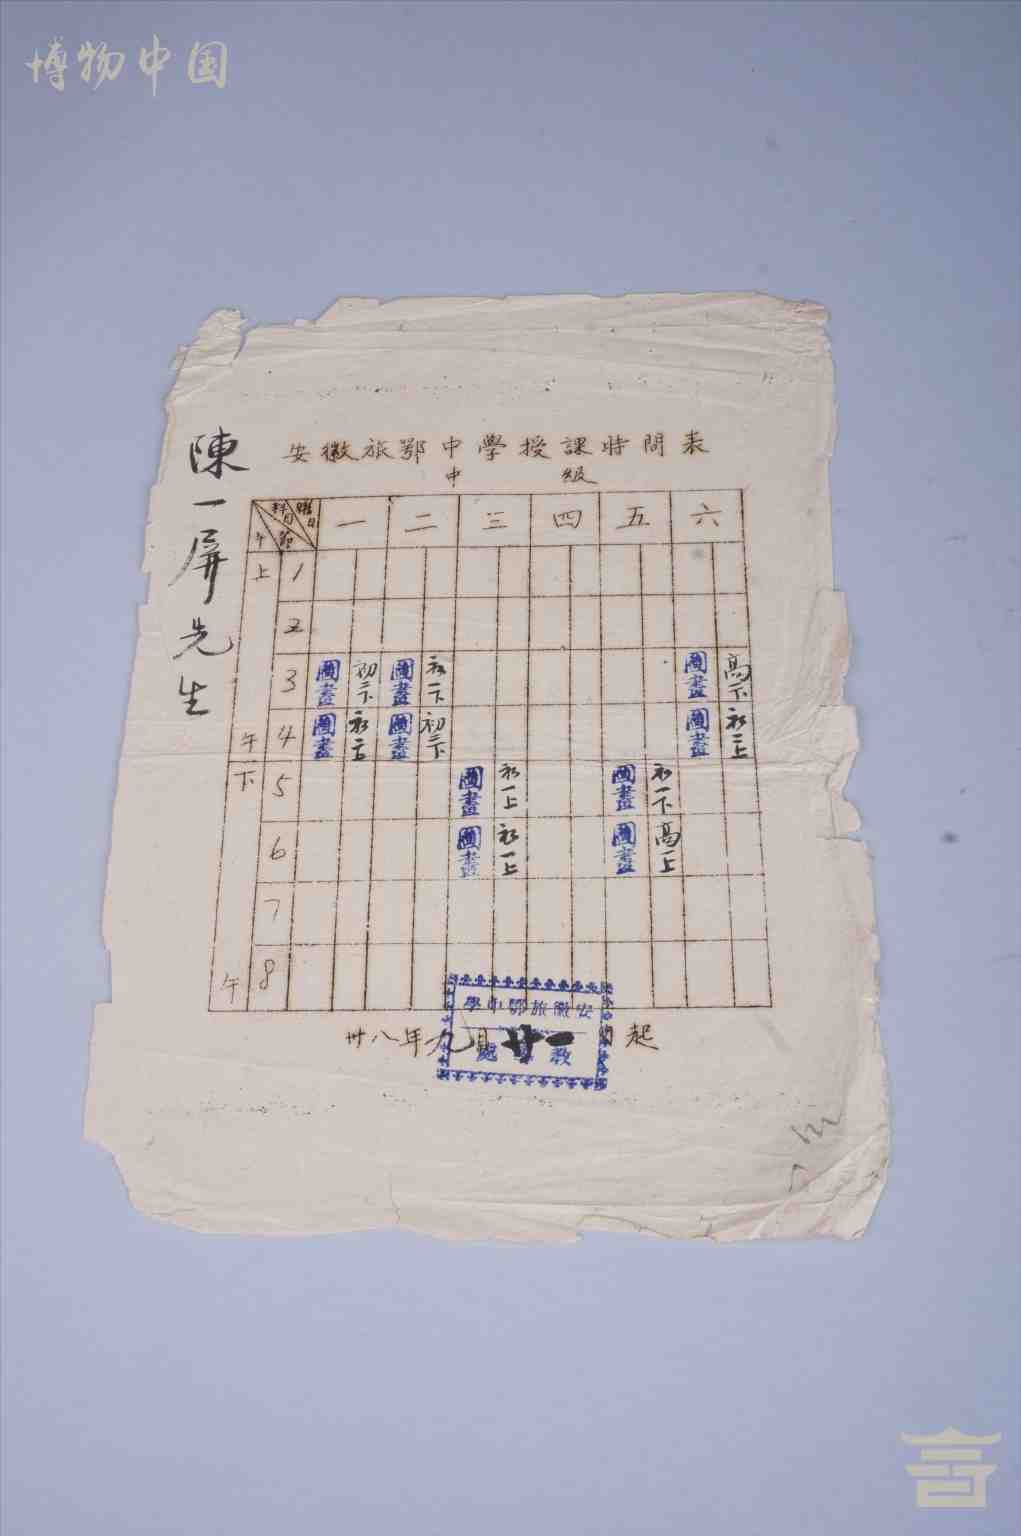 博物中国
陳一屏先生
安徽旅鄂中學授課時間表
中 級
曜日 科目 節 午 一 二 三 四 五 六
上 1
2
3 圖畫 初二下 圖畫 初一下 圖畫 高一下
午 4 圖畫 圖畫 初三下 圖畫 初二上
下 5 圖畫 初一上 圖畫 初一下
6 圖畫 初一上 圖畫 高一上
7
午 8
安徽旅鄂中學
教 處
卅八年九月廿一日起